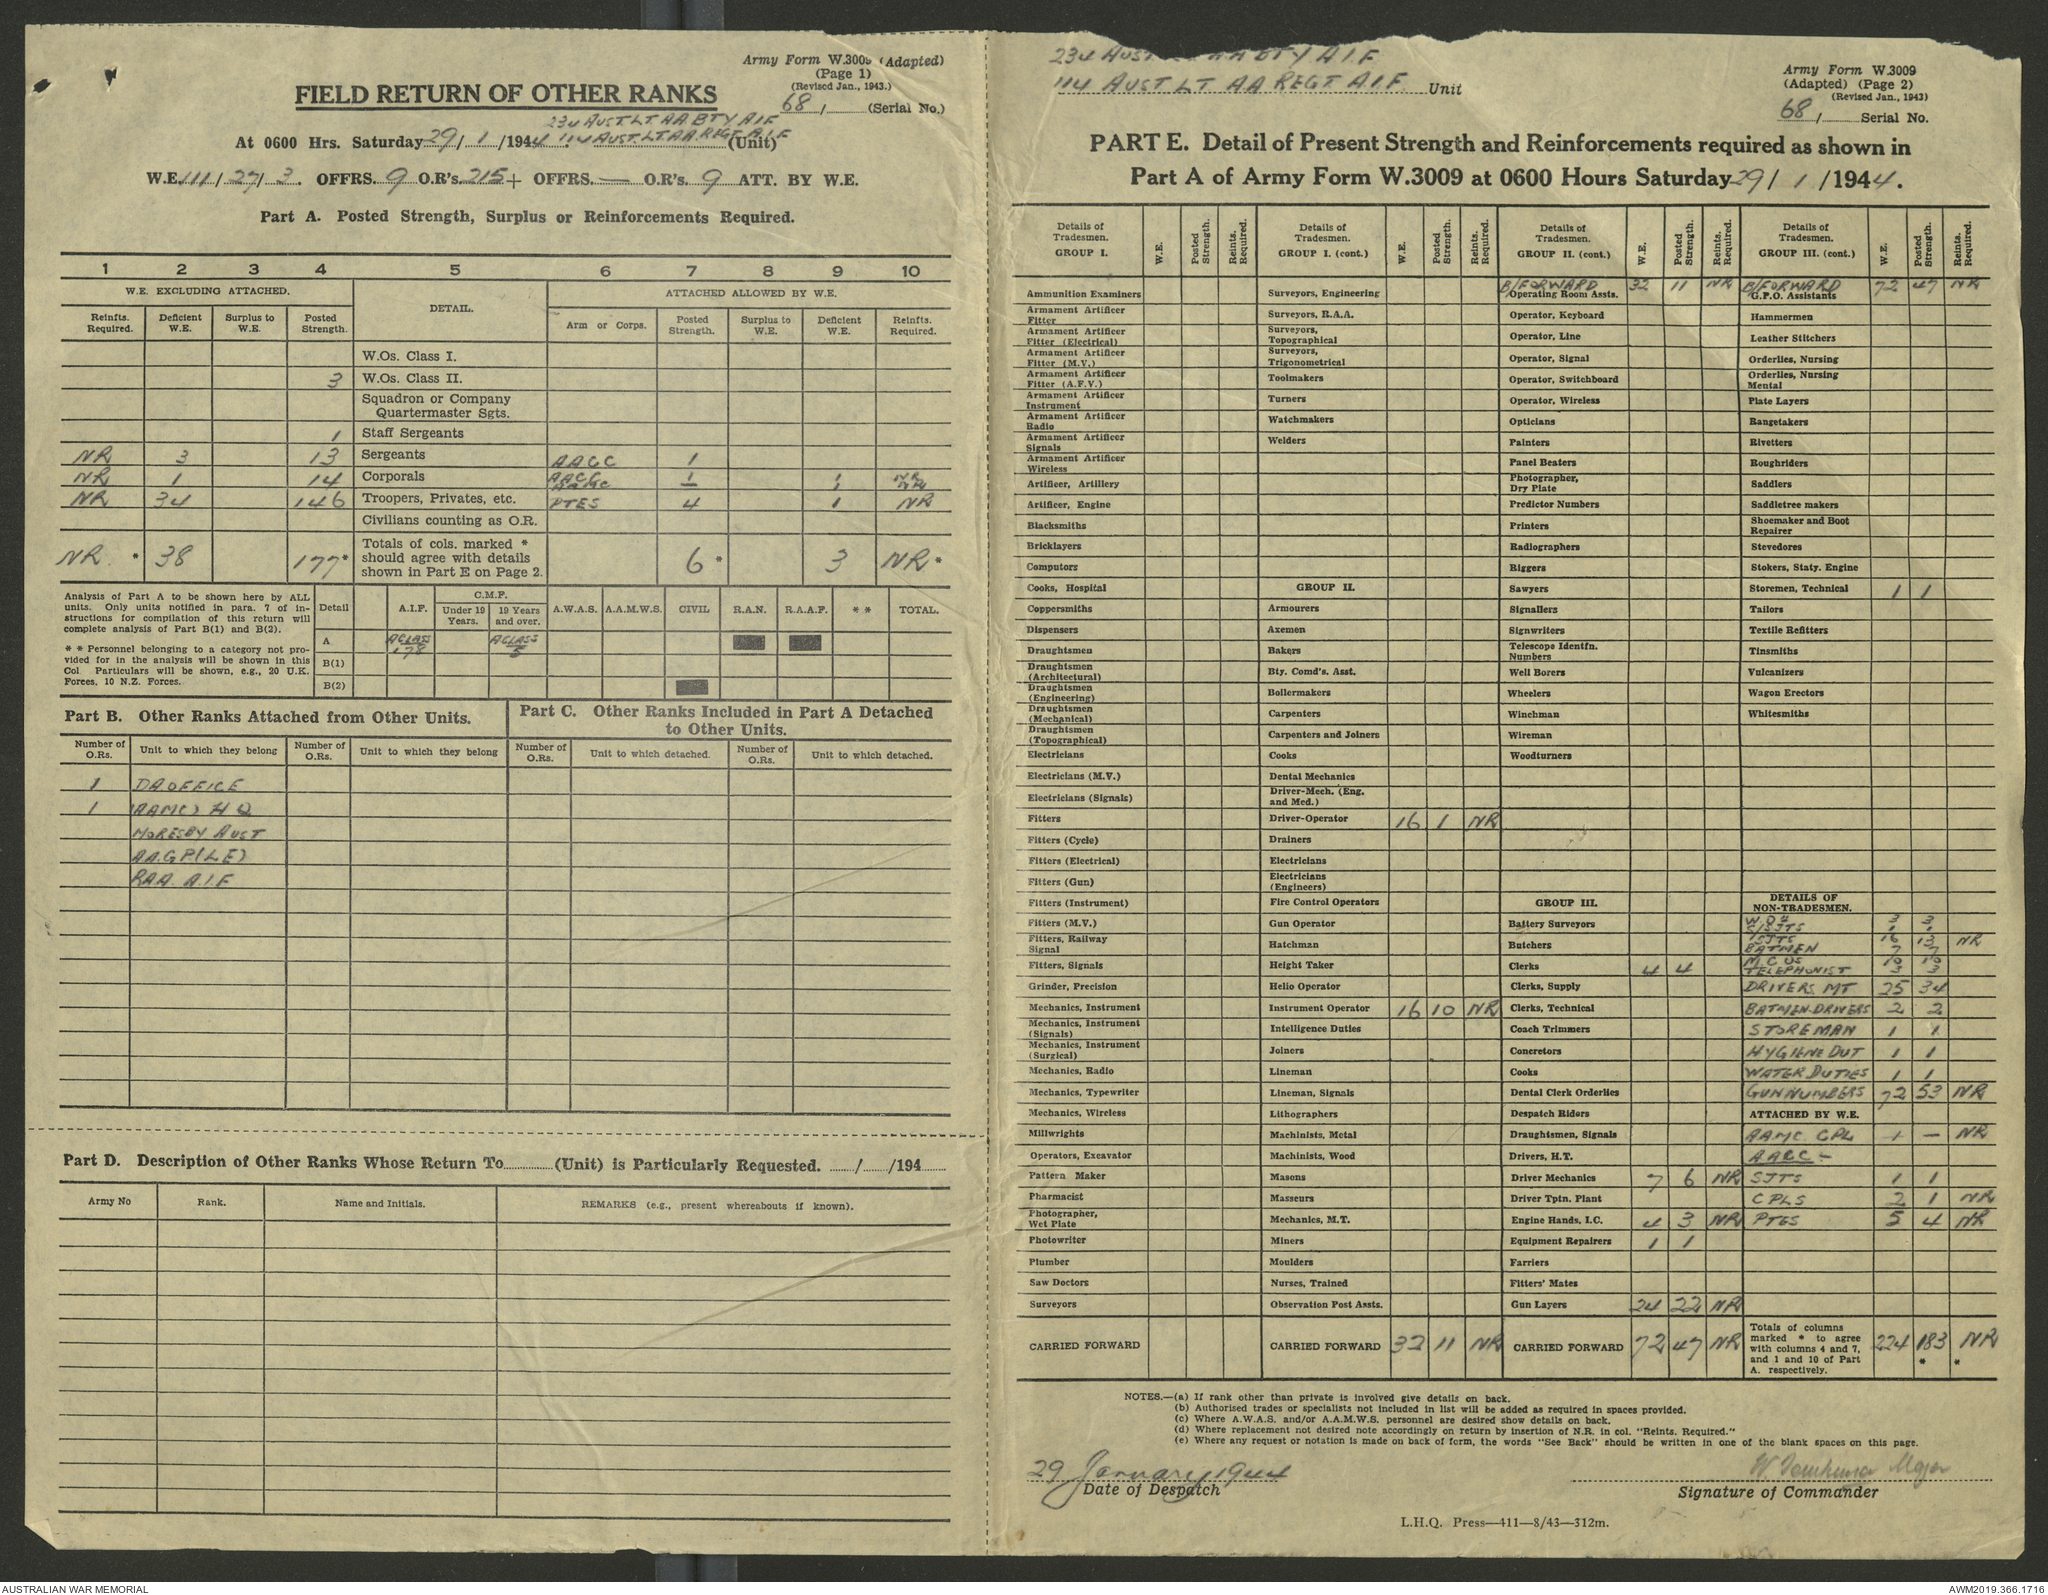 Army Form W.3009 (Adapted)
(Page 1)
(Revised Jan., 1943.)
FIELD RETURN OF OTHER RANKS
68/ (Serial No.)
234 AUST. LT. AA BTY AIF
At 0600 Hrs. Saturday 29/1/1944 114 AUST. LT AA REGT A.I.F (Unit)
W.E. 111/27/3. OFFRS. 9 O.R's. 215 + OFFRS. — O.R's. 9 ATT. BY W.E.
Part A. Posted Strength, Surplus or Reinforcements Required.
1 2 3 4 5 6 7 8 9 10
W.E. EXCLUDING ATTACHED. DETAIL. ATTACHED ALLOWED BY W.E.
Reinfts. Required. Deficient W.E. Surplus to W.E. Posted Strength. Arm or Corps. Posted Strength. Surplus to W.E. Deficient W.E. Reinfts. Required.
W.Os. Class I.
3 W.Os. Class II.
Squadron or Company
Quartermaster Sgts.
1 Staff Sergeants
NR 3 13 Sergeants AAGC 1
NR 1 14 Corporals AACC 1 1 NR
AAMC — 1 NR
NR 34 146 Troopers, Privates, etc. PTES 4 1 NR
Civilians counting as O.R.
NR * 38 177* Totals of cols. marked * should agree with details shown in Part E on Page 2. 6 * 3 NR *
Analysis of Part A to be shown here by ALL
units. Only units notified in para. 7 of in-
structions for compilation of this return will
complete analysis of Part B(1) and B(2).
* * Personnel belonging to a category not pro-
vided for in the analysis will be shown in this
Col. Particulars will be shown, e.g., 20 U.K.
Forces, 10 N.Z. Forces.
Detail A.I.F. C.M.F. Under 19 Years. 19 Years and over. A.W.A.S. A.A.M.W.S. CIVIL R.A.N. R.A.A.F. * * TOTAL.
A A CLASS 178 A CLASS 5
B(1)
B(2)
Part B. Other Ranks Attached from Other Units.
Number of O.Rs. Unit to which they belong Number of O.Rs. Unit to which they belong
1 DA OFFICE
1 (AAMC) HQ
MORESBY AUST
AA.GP (LE)
RAA. A.I.F
Part C. Other Ranks Included in Part A Detached
to Other Units.
Number of O.Rs. Unit to which detached. Number of O.Rs. Unit to which detached.
Part D. Description of Other Ranks Whose Return To (Unit) is Particularly Requested. / /194
Army No Rank. Name and Initials. REMARKS (e.g., present whereabouts if known).
234 AUST. BTY A.I.F
114 AUST LT AA REGT A.I.F. Unit
Army Form W.3009
(Adapted) (Page 2)
(Revised Jan., 1943)
68/ Serial No.
PART E. Detail of Present Strength and Reinforcements required as shown in
Part A of Army Form W.3009 at 0600 Hours Saturday 29/1/1944.
Details of Tradesmen. GROUP I. W.E. Posted Strength. Reints. Required.
Ammunition Examiners
Armament Artificer Fitter
Armament Artificer Fitter (Electrical)
Armament Artificer Fitter (M.V.)
Armament Artificer Fitter (A.F.V.)
Armament Artificer Instrument
Armament Artificer Radio
Armament Artificer Signals
Armament Artificer Wireless
Artificer, Artillery
Artificer, Engine
Blacksmiths
Bricklayers
Computors
Cooks, Hospital
Coppersmiths
Dispensers
Draughtsmen
Draughtsmen (Architectural)
Draughtsmen (Engineering)
Draughtsmen (Mechanical)
Draughtsmen (Topographical)
Electricians
Electricians (M.V.)
Electricians (Signals)
Fitters
Fitters (Cycle)
Fitters (Electrical)
Fitters (Gun)
Fitters (Instrument)
Fitters (M.V.)
Fitters, Railway Signal
Fitters, Signals
Grinder, Precision
Mechanics, Instrument
Mechanics, Instrument (Signals)
Mechanics, Instrument (Surgical)
Mechanics, Radio
Mechanics, Typewriter
Mechanics, Wireless
Millwrights
Operators, Excavator
Pattern Maker
Pharmacist
Photographer, Wet Plate
Photowriter
Plumber
Saw Doctors
Surveyors
CARRIED FORWARD
Details of Tradesmen. GROUP I. (cont.) W.E. Posted Strength. Reints. Required.
Surveyors, Engineering
Surveyors, R.A.A.
Surveyors, Topographical
Surveyors, Trigonometrical
Toolmakers
Turners
Watchmakers
Welders
GROUP II.
Armourers
Axemen
Bakers
Bty. Comd's. Asst.
Boilermakers
Carpenters
Carpenters and Joiners
Cooks
Dental Mechanics
Driver-Mech. (Eng. and Med.)
Driver-Operator 16 1 NR
Drainers
Electricians
Electricians (Engineers)
Fire Control Operators
Gun Operator
Hatchman
Height Taker
Helio Operator
Instrument Operator 16 10 NR
Intelligence Duties
Joiners
Lineman
Lineman, Signals
Lithographers
Machinists, Metal
Machinists, Wood
Masons
Masseurs
Mechanics, M.T.
Miners
Moulders
Nurses, Trained
Observation Post Assts.
CARRIED FORWARD 32 11 NR
Details of Tradesmen. GROUP II. (cont.) W.E. Posted Strength. Reints. Required.
B/FORWARD 32 11 NR
Operating Room Assts.
Operator, Keyboard
Operator, Line
Operator, Signal
Operator, Switchboard
Operator, Wireless
Opticians
Painters
Panel Beaters
Photographer, Dry Plate
Predictor Numbers
Printers
Radiographers
Riggers
Sawyers
Signallers
Signwriters
Telescope Identfn. Numbers
Well Borers
Wheelers
Winchman
Wireman
Woodturners
GROUP III.
Battery Surveyors
Butchers
Clerks 4 4
Clerks, Supply
Clerks, Technical
Coach Trimmers
Concretors
Cooks
Dental Clerk Orderlies
Despatch Riders
Draughtsmen, Signals
Drivers, H.T.
Driver Mechanics 7 6 NR
Driver Tptn. Plant
Engine Hands, I.C. 4 3 NR
Equipment Repairers 1 1
Farriers
Fitters' Mates
Gun Layers 24 22 NR
CARRIED FORWARD 72 47 NR
Details of Tradesmen. GROUP III. (cont.) W.E. Posted Strength. Reints. Required.
B/FORWARD 72 47 NR
G.P.O. Assistants
Hammermen
Leather Stitchers
Orderlies, Nursing
Orderlies, Nursing Mental
Plate Layers
Rangetakers
Rivetters
Roughriders
Saddlers
Saddletree makers
Shoemaker and Boot Repairer
Stevedores
Stokers, Staty. Engine
Storemen, Technical 1 1
Tailors
Textile Refitters
Tinsmiths
Vulcanizers
Wagon Erectors
Whitesmiths
DETAILS OF NON-TRADESMEN.
W.O 4 3 3
S/SJTS 1 1
SJTS 16 13 NR
BATMEN 7 7
M C US 10 10
TELEPHONIST 3 3
DRIVERS MT 25 34
BATMEN-DRIVERS 2 2
STOREMAN 1 1
HYGIENE DUT 1 1
WATER DUTIES 1 1
GUN NUMBERS 72 53 NR
ATTACHED BY W.E.
AAMC CPL 1 — NR
AACC –
SJTS 1 1
CPLS 2 1 NR
PTES 5 4 NR
Totals of columns marked * to agree with columns 4 and 7, and 1 and 10 of Part A. respectively. 224 183 * NR *
NOTES.—(a) If rank other than private is involved give details on back.
(b) Authorised trades or specialists not included in list will be added as required in spaces provided.
(c) Where A.W.A.S. and/or A.A.M.W.S. personnel are desired show details on back.
(d) Where replacement not desired note accordingly on return by insertion of N.R. in col. "Reints. Required."
(e) Where any request or notation is made on back of form, the words "See Back" should be written in one of the blank spaces on this page.
29 January 1944
Date of Despatch
Major
Signature of Commander
L.H.Q. Press—411—8/43—312m.
AUSTRALIAN WAR MEMORIAL
AWM2019.366.1716